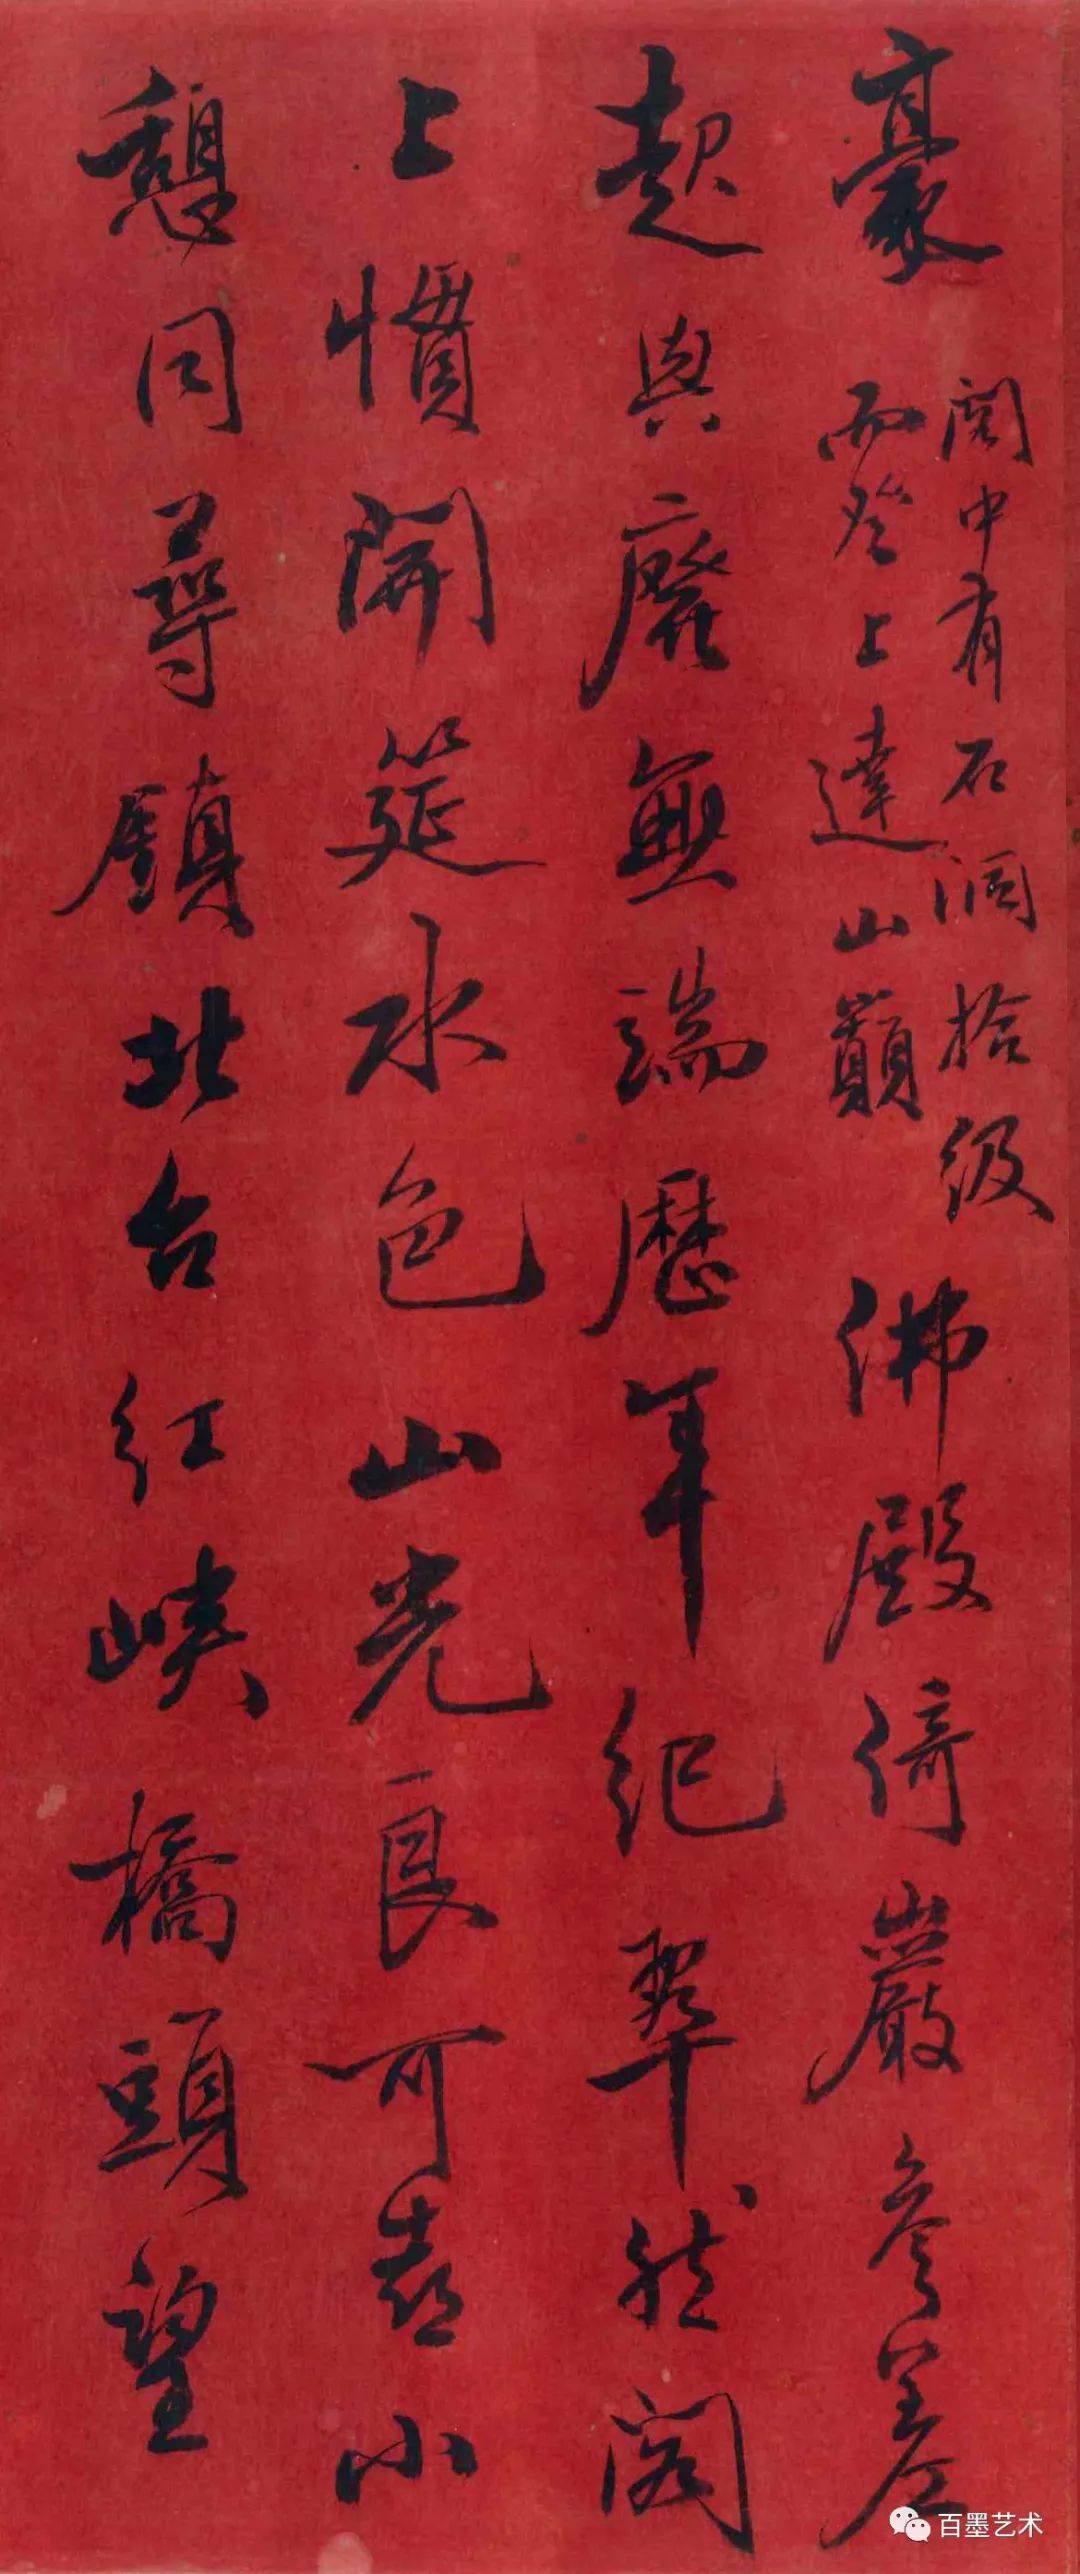 豪
閣中有石洞拾級
而登上達山巔
佛殿倚巖參差
起興廢無端歷年紀翠然閣
上慣開筵水色山光良可喜小
憩同尋鎮北台紅峽橋頭望
百墨艺术